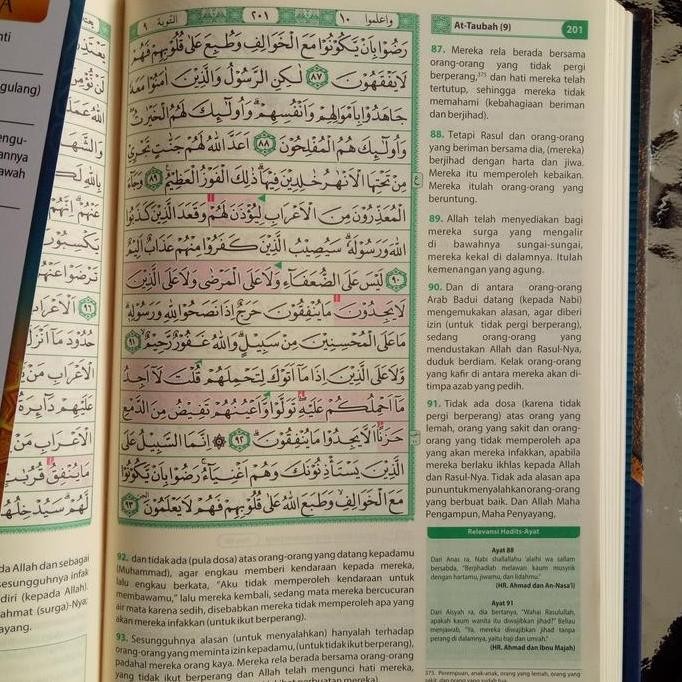 نتي
gulang)
engu-
annya
awah
واعلموا ١٠
٢٠١
التوبة ٩
رَضُوْا بِاَنْ يَّكُوْنُوْا مَعَ الْخَوَالِفِ وَطُبِعَ عَلٰى قُلُوْبِهِمْ فَهُمْ
لَا يَفْقَهُوْنَ ٨٧ لٰكِنِ الرَّسُوْلُ وَالَّذِيْنَ اٰمَنُوْا مَعَهٗ
جَاهَدُوْا بِاَمْوَالِهِمْ وَاَنْفُسِهِمْۗ وَاُولٰۤىِٕكَ لَهُمُ الْخَيْرٰتُ
وَاُولٰۤىِٕكَ هُمُ الْمُفْلِحُوْنَ ٨٨ اَعَدَّ اللّٰهُ لَهُمْ جَنّٰتٍ تَجْرِيْ
مِنْ تَحْتِهَا الْاَنْهٰرُ خٰلِدِيْنَ فِيْهَاۗ ذٰلِكَ الْفَوْزُ الْعَظِيْمُ ٨٩ وَجَاۤءَ
الْمُعَذِّرُوْنَ مِنَ الْاَعْرَابِ لِيُؤْذَنَ لَهُمْ وَقَعَدَ الَّذِيْنَ كَذَبُوا
اللّٰهَ وَرَسُوْلَهٗۗ سَيُصِيْبُ الَّذِيْنَ كَفَرُوْا مِنْهُمْ عَذَابٌ اَلِيْمٌ
٩٠ لَيْسَ عَلَى الضُّعَفَاۤءِ وَلَا عَلَى الْمَرْضٰى وَلَا عَلَى الَّذِيْنَ
لَا يَجِدُوْنَ مَا يُنْفِقُوْنَ حَرَجٌ اِذَا نَصَحُوْا لِلّٰهِ وَرَسُوْلِهٖۗ
مَا عَلَى الْمُحْسِنِيْنَ مِنْ سَبِيْلٍۗ وَاللّٰهُ غَفُوْرٌ رَّحِيْمٌ ٩١
وَّلَا عَلَى الَّذِيْنَ اِذَا مَآ اَتَوْكَ لِتَحْمِلَهُمْ قُلْتَ لَآ اَجِدُ
مَآ اَحْمِلُكُمْ عَلَيْهِۖ تَوَلَّوْا وَّاَعْيُنُهُمْ تَفِيْضُ مِنَ الدَّمْعِ
حَزَنًا اَلَّا يَجِدُوْا مَا يُنْفِقُوْنَۗ ٩٢ ۞ اِنَّمَا السَّبِيْلُ عَلَى
الَّذِيْنَ يَسْتَأْذِنُوْنَكَ وَهُمْ اَغْنِيَاۤءُۚ رَضُوْا بِاَنْ يَّكُوْنُوْا
مَعَ الْخَوَالِفِۙ وَطَبَعَ اللّٰهُ عَلٰى قُلُوْبِهِمْ فَهُمْ لَا يَعْلَمُوْنَ ٩٣
92. dan tidak ada (pula dosa) atas orang-orang yang datang kepadamu
(Muhammad), agar engkau memberi kendaraan kepada mereka,
lalu engkau berkata, "Aku tidak memperoleh kendaraan untuk
membawamu," lalu mereka kembali, sedang mata mereka bercucuran
air mata karena sedih, disebabkan mereka tidak memperoleh apa yang
akan mereka infakkan (untuk ikut berperang).
93. Sesungguhnya alasan (untuk menyalahkan) hanyalah terhadap
orang-orang yang meminta izin kepadamu, (untuk tidak ikut berperang),
padahal mereka orang kaya. Mereka rela berada bersama orang-orang
yang tidak ikut berperang dan Allah telah mengunci hati mereka,
At-Taubah (9)
201
87. Mereka rela berada bersama
orang-orang yang tidak pergi
berperang,375 dan hati mereka telah
tertutup, sehingga mereka tidak
memahami (kebahagiaan beriman
dan berjihad).
88. Tetapi Rasul dan orang-orang
yang beriman bersama dia, (mereka)
berjihad dengan harta dan jiwa.
Mereka itu memperoleh kebaikan.
Mereka itulah orang-orang yang
beruntung.
89. Allah telah menyediakan bagi
mereka surga yang mengalir
di bawahnya sungai-sungai,
mereka kekal di dalamnya. Itulah
kemenangan yang agung.
90. Dan di antara orang-orang
Arab Badui datang (kepada Nabi)
mengemukakan alasan, agar diberi
izin (untuk tidak pergi berperang),
sedang orang-orang yang
mendustakan Allah dan Rasul-Nya,
duduk berdiam. Kelak orang-orang
yang kafir di antara mereka akan di-
timpa azab yang pedih.
91. Tidak ada dosa (karena tidak
pergi berperang) atas orang yang
lemah, orang yang sakit dan orang-
orang yang tidak memperoleh apa
yang akan mereka infakkan, apabila
mereka berlaku ikhlas kepada Allah
dan Rasul-Nya. Tidak ada alasan apa
pun untuk menyalahkan orang-orang
yang berbuat baik. Dan Allah Maha
Pengampun, Maha Penyayang,
Relevansi Hadits-Ayat
Ayat 88
Dari Anas ra, Nabi shallallahu 'alaihi wa sallam
bersabda, "Berjihadlah melawan kaum musyrik
dengan hartamu, jiwamu, dan lidahmu."
(HR. Ahmad dan An-Nasa'i)
Ayat 91
Dari Aisyah ra, dia bertanya, "Wahai Rasulullah,
apakah kaum wanita itu diwajibkan jihad?" Beliau
menjawab, "Ya, mereka diwajibkan jihad tanpa
perang di dalamnya, yaitu haji dan umrah."
(HR. Ahmad dan Ibnu Majah)
375. Perempuan, anak-anak, orang yang lemah, orang yang
da Allah dan sebagai
sesungguhnya infak
diri (kepada Allah).
ahmat (surga)-Nya;
ayang.